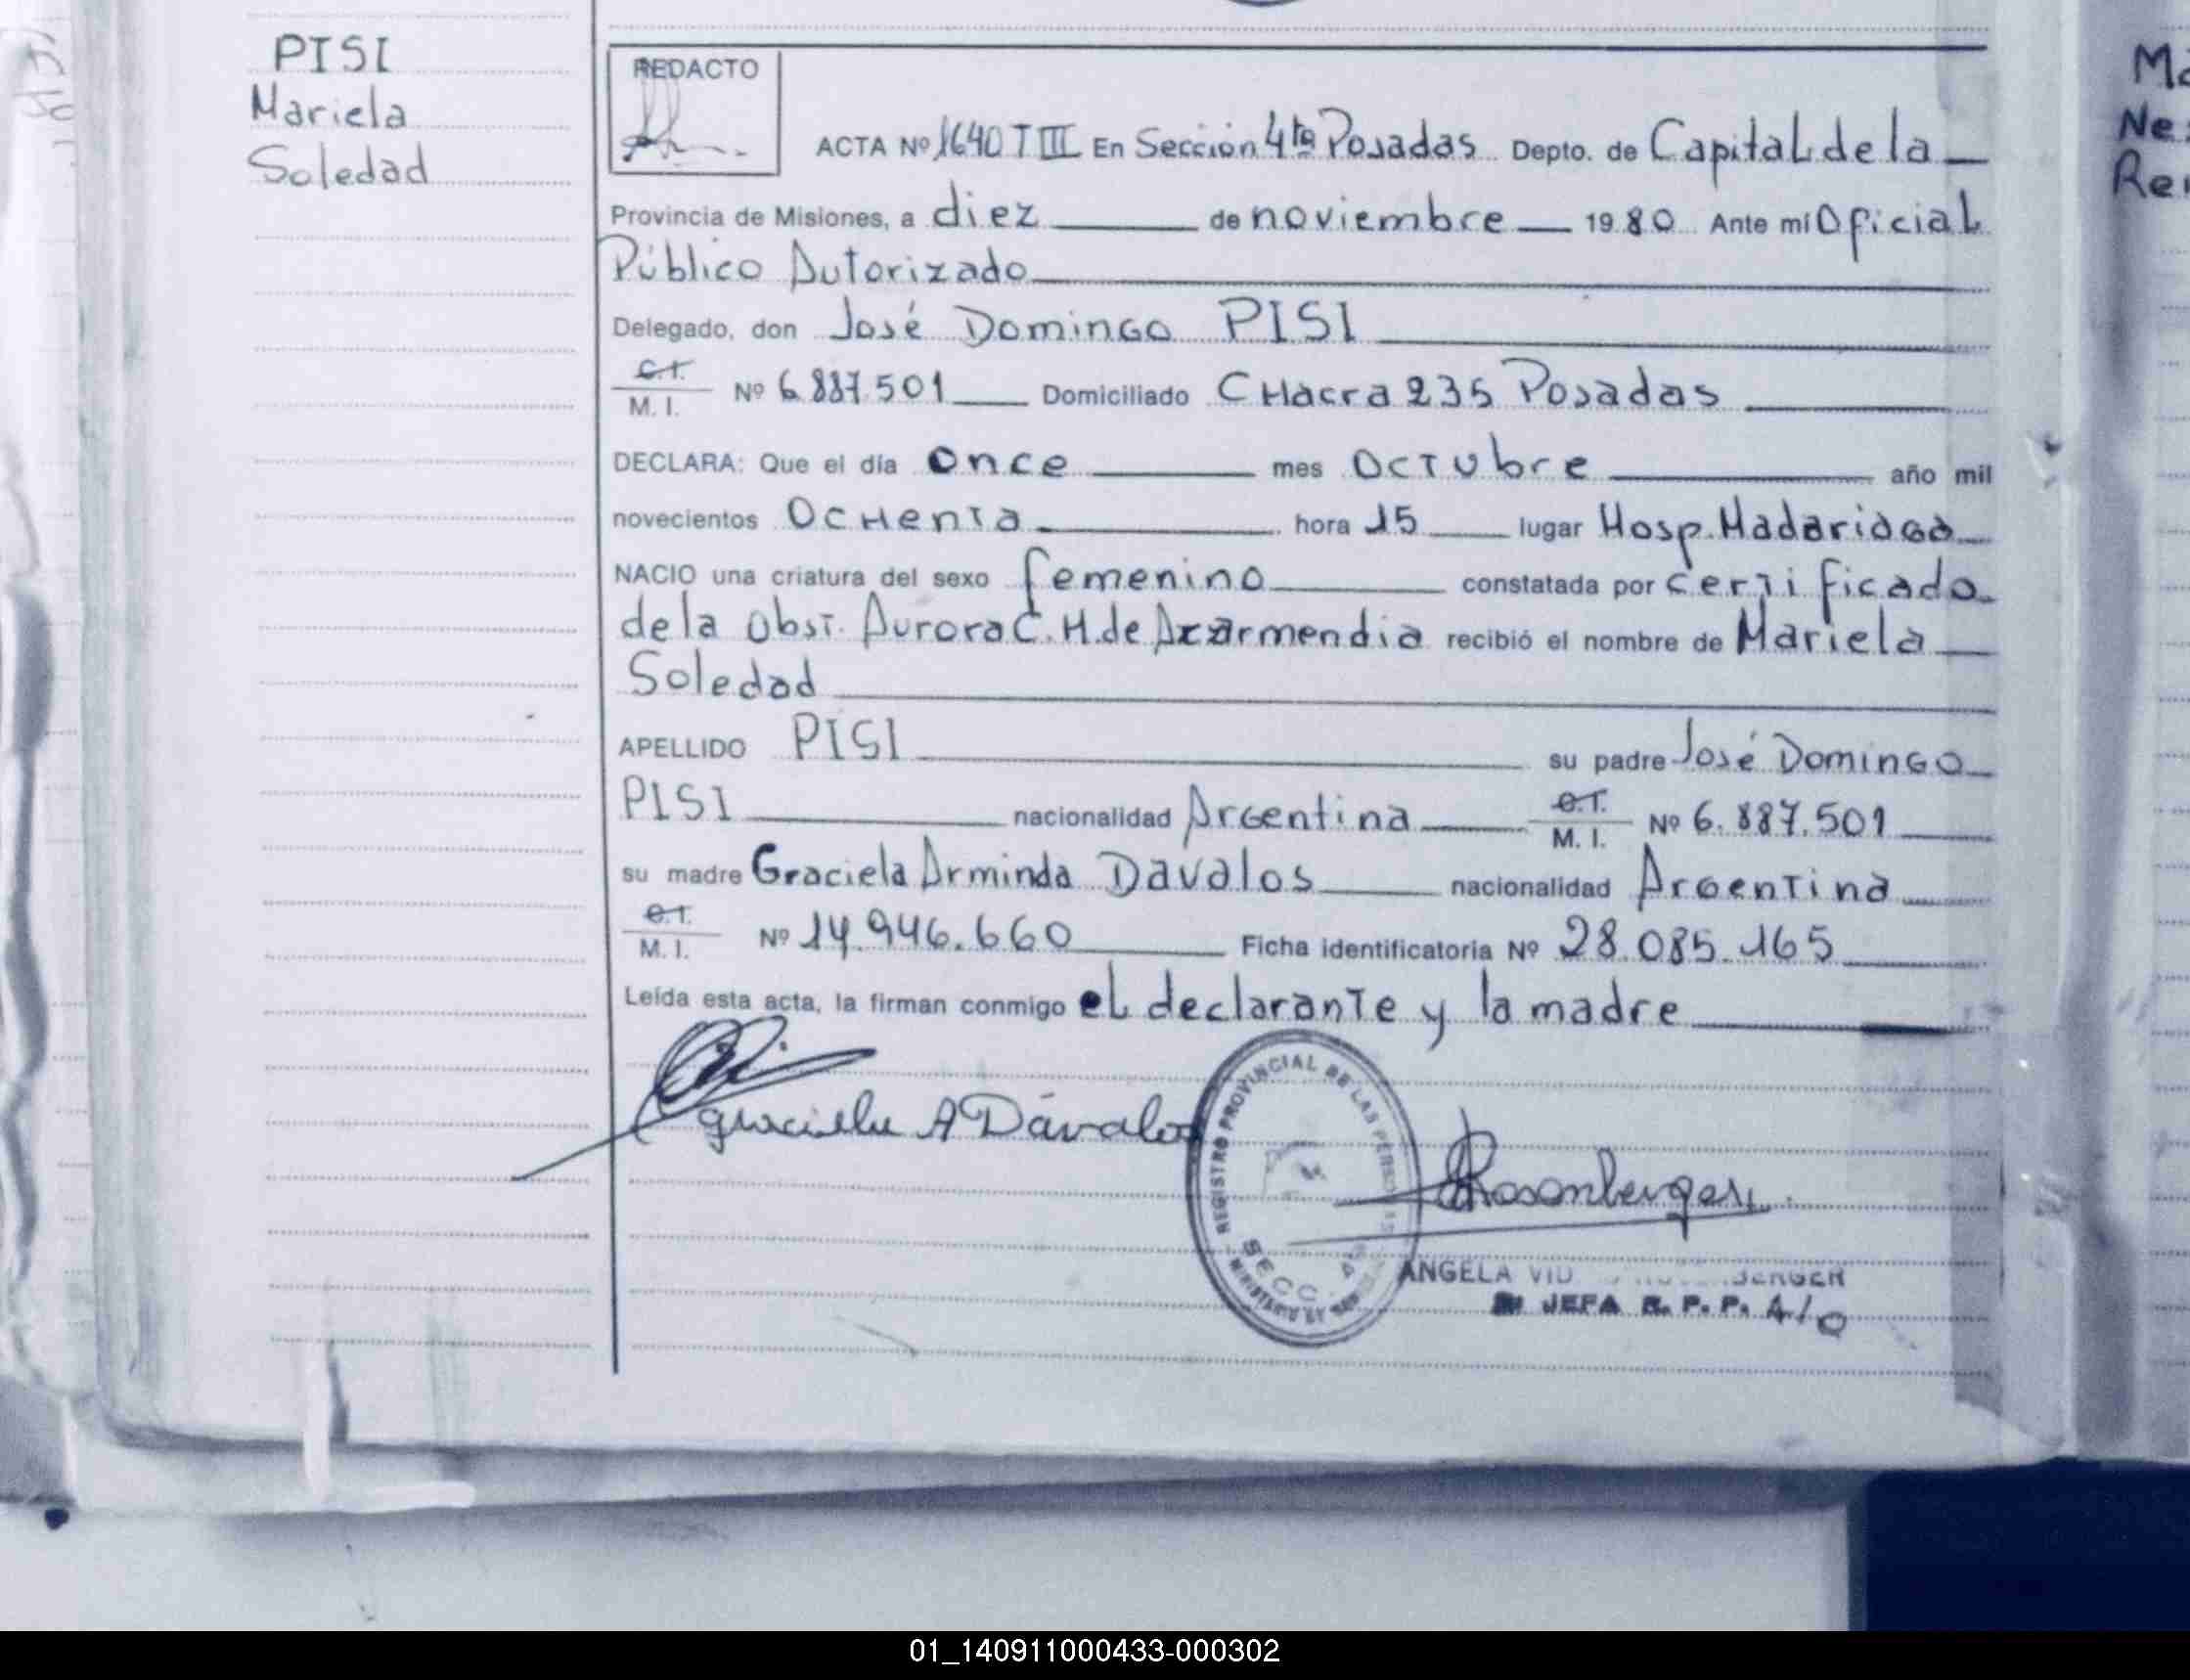 PISI
Mariela
Soledad
REDACTO
ACTA Nº 1640 T III En Sección 4ta Posadas Depto. de Capital de la
Provincia de Misiones, a diez de noviembre 1980 Ante mí Oficial
Público Autorizado
Delegado, don José Domingo PISI
C.I.
M. I. Nº 6.887.501 Domiciliado CHacra 235 Posadas
DECLARA: Que el día once mes Octubre año mil
novecientos OcHenta hora 15 lugar Hosp. Madariaga
NACIO una criatura del sexo femenino constatada por certificado
de la Obst. Aurora C. H. de Azarmendia recibió el nombre de Mariela
Soledad
APELLIDO PISI su padre José Domingo
PISI nacionalidad Argentina C.I. M. I. Nº 6.887.501
su madre Graciela Arminda Davalos nacionalidad Argentina
C.I.
M. I. Nº 14.946.660 Ficha identificatoria Nº 28.085.165
Leída esta acta, la firman conmigo el declarante y la madre
Graciela A Dávalos
REGISTRO PROVINCIAL DE LAS PERSONAS
SECC. 4a
MINISTERIO DE
Rosenberger
ANGELA
JEFA R. P. P. A/C
Ma
Ne
Re
01_140911000433-000302